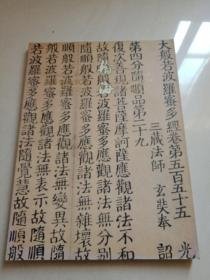 大般若波羅蜜多經卷第五百五十五
三藏法師 玄奘奉 詔
第四分隨順品第二十九
復次善現諸菩薩摩訶薩應觀諸法不和
故隨順般若波羅蜜多應觀諸法無分別
隨順般若波羅蜜多應觀諸法無雜壞故
順般若波羅蜜多應觀諸法無變異故隨
般若波羅蜜多應觀諸法無表示故隨順
若波羅蜜多應觀諸法隨覺慧故隨順般